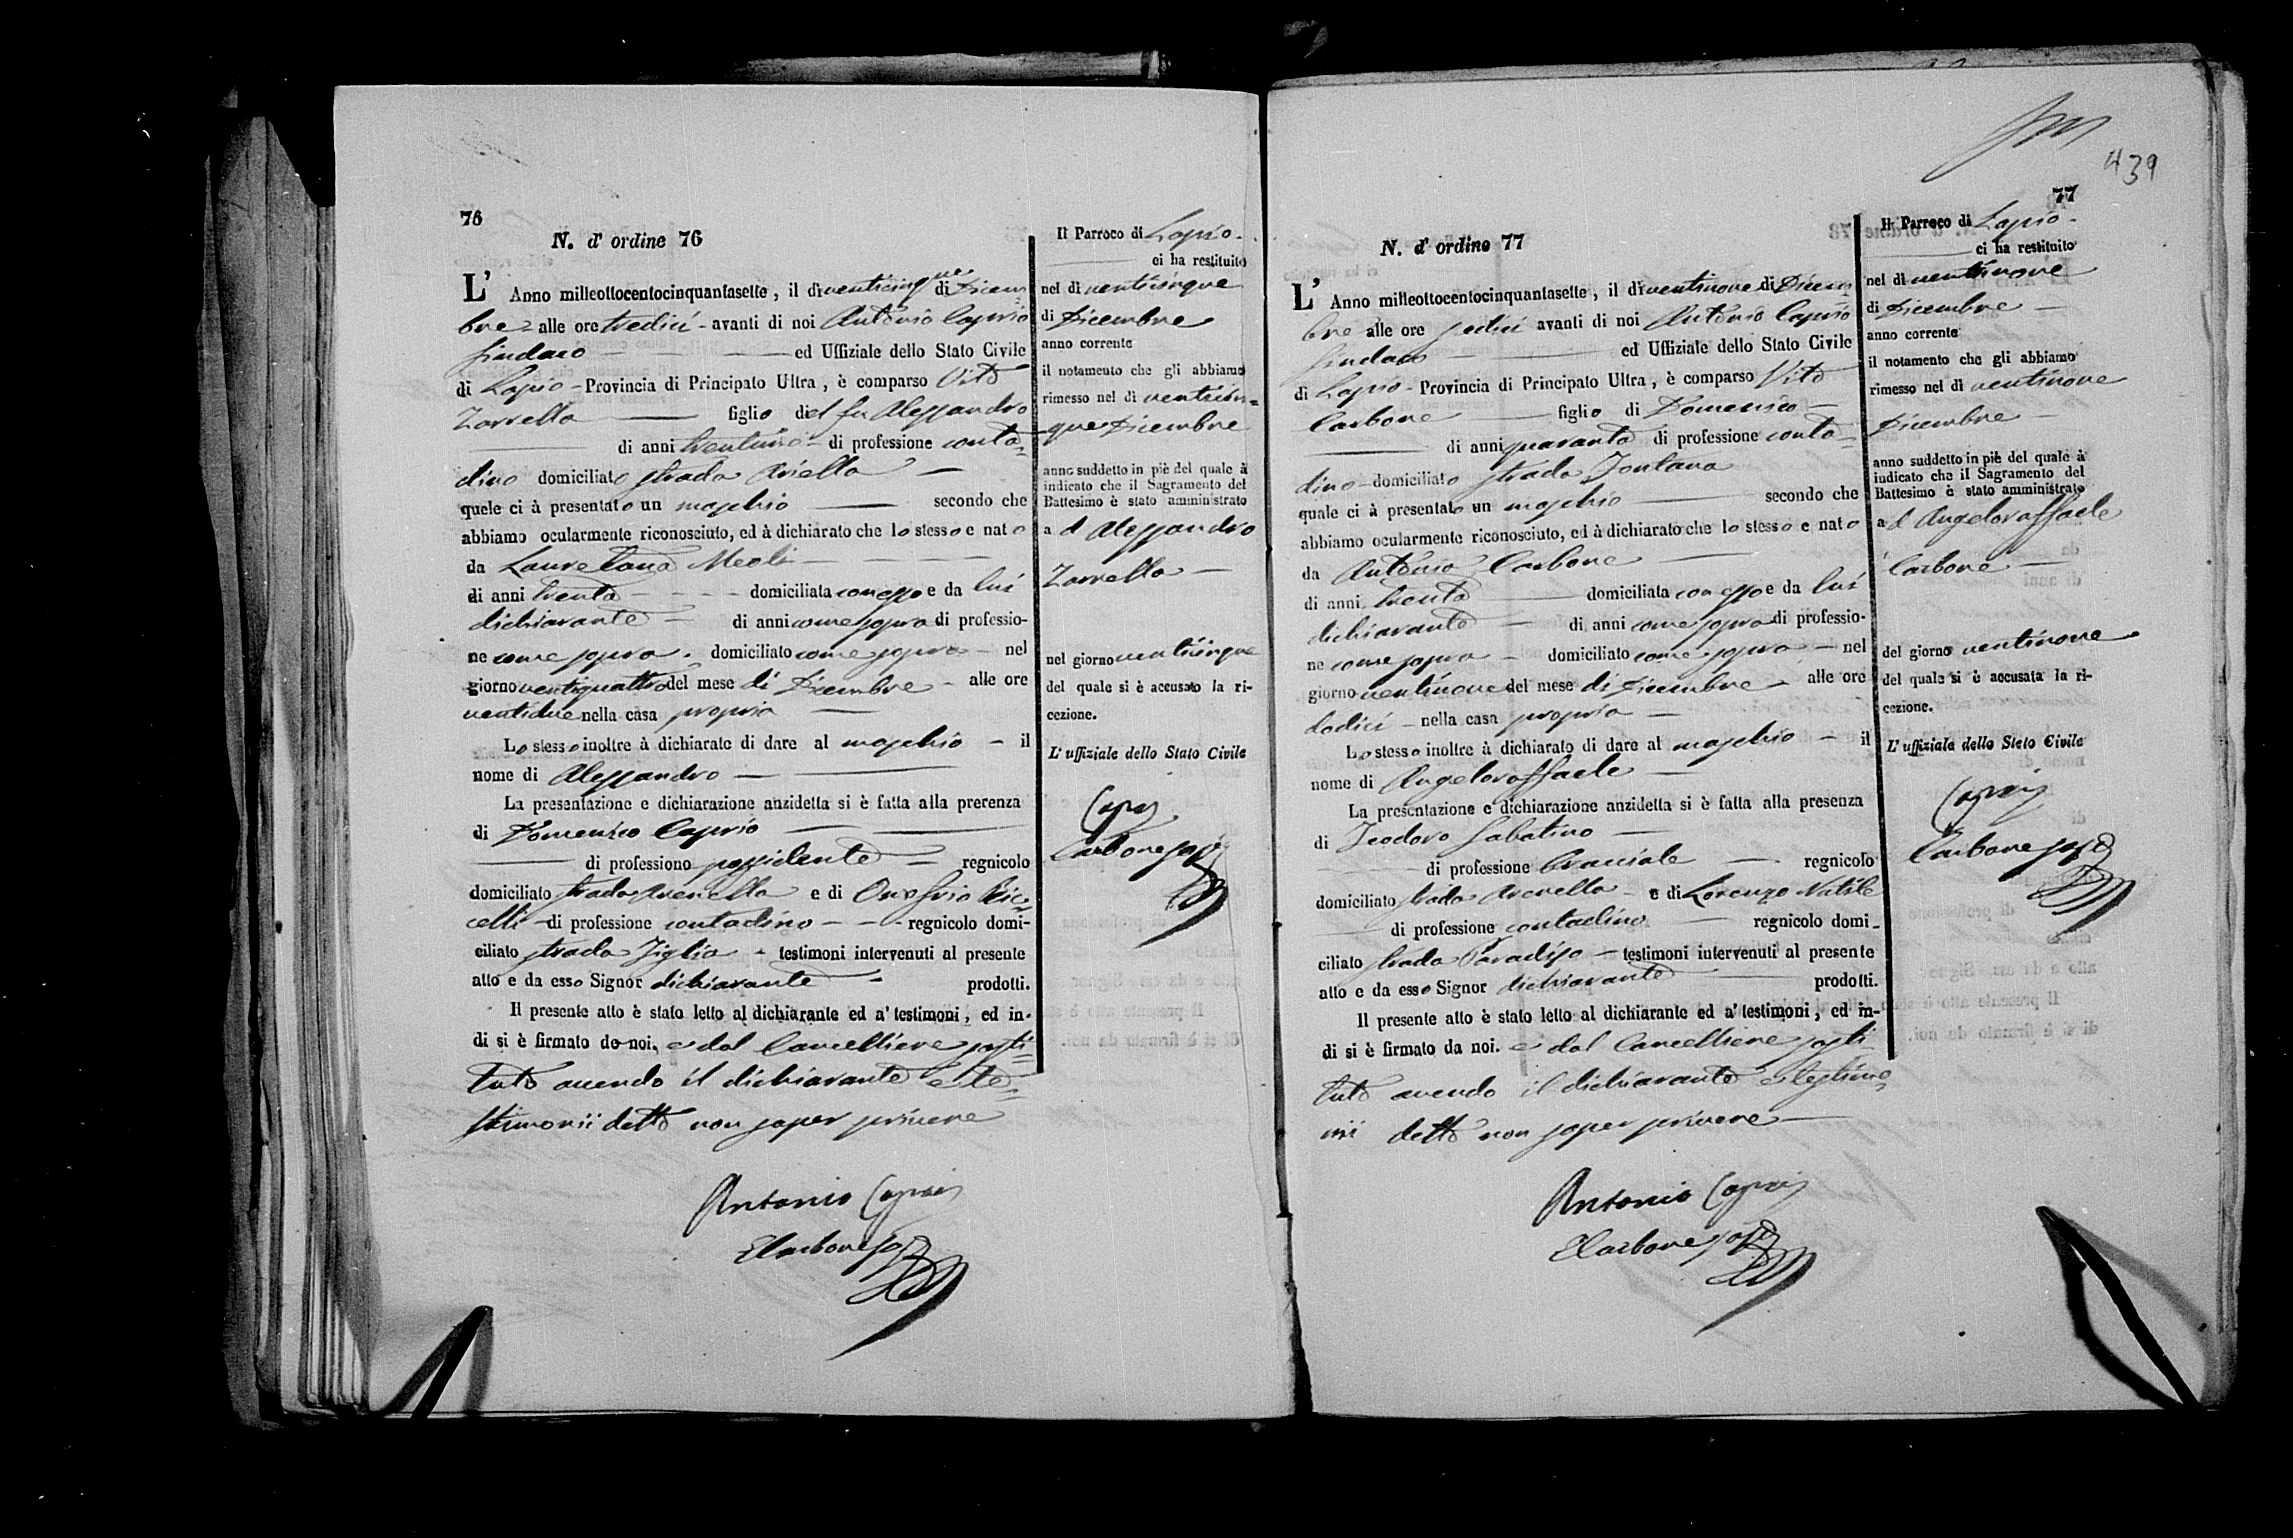 76
N. d' ordine 76
L' Anno milleottocentocinquantasette, il dì venticinque di Dicem
bre - alle ore tredici - avanti di noi Antonio Caprio
Sindaco ed Uffiziale dello Stato Civile
di Lapio - Provincia di Principato Ultra, è comparso Vito
Zarrella figlio del fu Alessandro
di anni trentuno - di professione conta=
dino domiciliato strada Ariella
quele ci à presentato un maschio secondo che
abbiamo ocularmente riconosciuto, ed à dichiarato che lo stesso e nato
da Lauretana Meoli
di anni trenta domiciliata con esso e da lui
dichiarante di anni come sopra di professio-
ne come sopra. domiciliato come sopra - nel
giorno ventiquattro del mese di Dicembre - alle ore
ventidue nella casa propria
Lo stesso inoltre à dichiarato di dare al maschio - il
nome di Alessandro
La presentazione e dichiarazione anzidetta si è fatta alla prerenza
di Domenico Caprio
di professiono possidente regnicolo
domiciliato strada Arenella e di Onofrio
celli - di professione contadino - regnicolo domi-
ciliato strada Figlia - testimoni intervenuti al presente
atto e da esso Signor dichiarante prodotti.
Il presente atto è stato letto al dichiarante ed a' testimoni, ed in-
di si è firmato da noi, e dal Cancelliere sosti=
tuto avendo il dichiarante e te=
stimonii detto non saper scrivere
Antonio Caprio
Carbone
Il Parroco di Lapio -
ci ha restituito
nel dì venticinque
di Dicembre
anno corrente
il notamento che gli abbiamo
rimesso nel dì venticin=
que Dicembre
anno suddetto in piè del quale à
indicato che il Sagramento del
Battesimo è stato amministrato
a d Alessandro
Zarrella
nel giorno venticinque
del quale si è accusato la ri-
cezione.
L' uffiziale dello Stato Civile
Caprio
Carbone
439
77
N. d' ordine 77
L' Anno milleottocentocinquantasette, il dì ventinove di Dicem
bre alle ore sedici avanti di noi Antonio Caprio
Sindaco ed Uffiziale dello Stato Civile
di Lapio - Provincia di Principato Ultra, è comparso Vito
Carbone figlio di Domenico
di anni quaranta di professione conta=
dino - domiciliato strada Fontana
quale ci à presentato un maschio secondo che
abbiamo ocularmente riconosciuto, ed à dichiarato che lo stesso e nato
da Antonia Carbone
di anni trenta domiciliata con esso e da lui
dichiarante di anni come sopra di professio-
ne come sopra - domiciliato come sopra - nel
giorno ventinove del mese di Dicembre - alle ore
dodici - nella casa propria
Lo stesso inoltre à dichiarato di dare al maschio - il
nome di Angeloraffaele
La presentazione e dichiarazione anzidetta si è fatta alla presenza
di Teodoro Sabatino
di professione Bracciale regnicolo
domiciliato strada Arenella e di Lorenzo Natale
di professione contadino regnicolo domi-
ciliato strada Paradiso - testimoni intervenuti al presente
atto e da esso Signor dichiarante prodotti.
Il presente atto è stato letto al dichiarante ed a' testimoni, ed in-
di si è firmato da noi. e dal Cancelliere sosti
tuto avendo il dichiarante e testimo=
nii detto non saper scrivere
Antonio Caprio
Carbone
Il Parroco di Lapio -
ci ha restituito
nel dì ventinove
di Dicembre
anno corrente
il notamento che gli abbiamo
rimesso nel dì ventinove
Dicembre
anno suddetto in piè del quale à
indicato che il Sagramento del
Battesimo è stato amministrato
a d Angeloraffaele
Carbone
del giorno ventinove
del quale si è accusata la ri-
cezione.
L' uffiziale dello Stato Civile
Caprio
Carbone